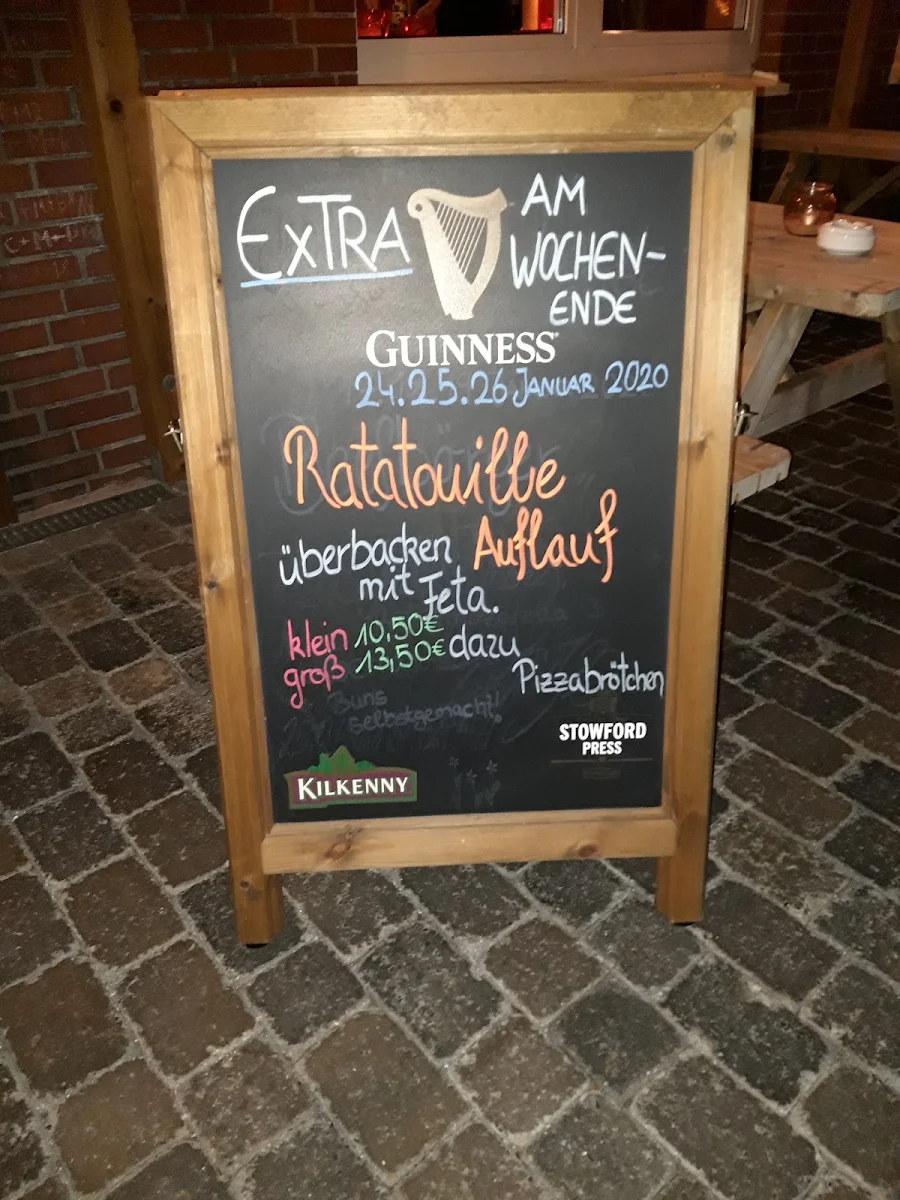 ExTRA
AM
WOCHEN-
ENDE
GUINNESS
24.25.26 JANUAR 2020
Ratatouille
Auflauf
überbacken
mit Feta.
klein 10,50€
groß 13,50€
dazu
Pizzabrötchen
Buns
selbstgemacht!
STOWFORD
PRESS
KILKENNY